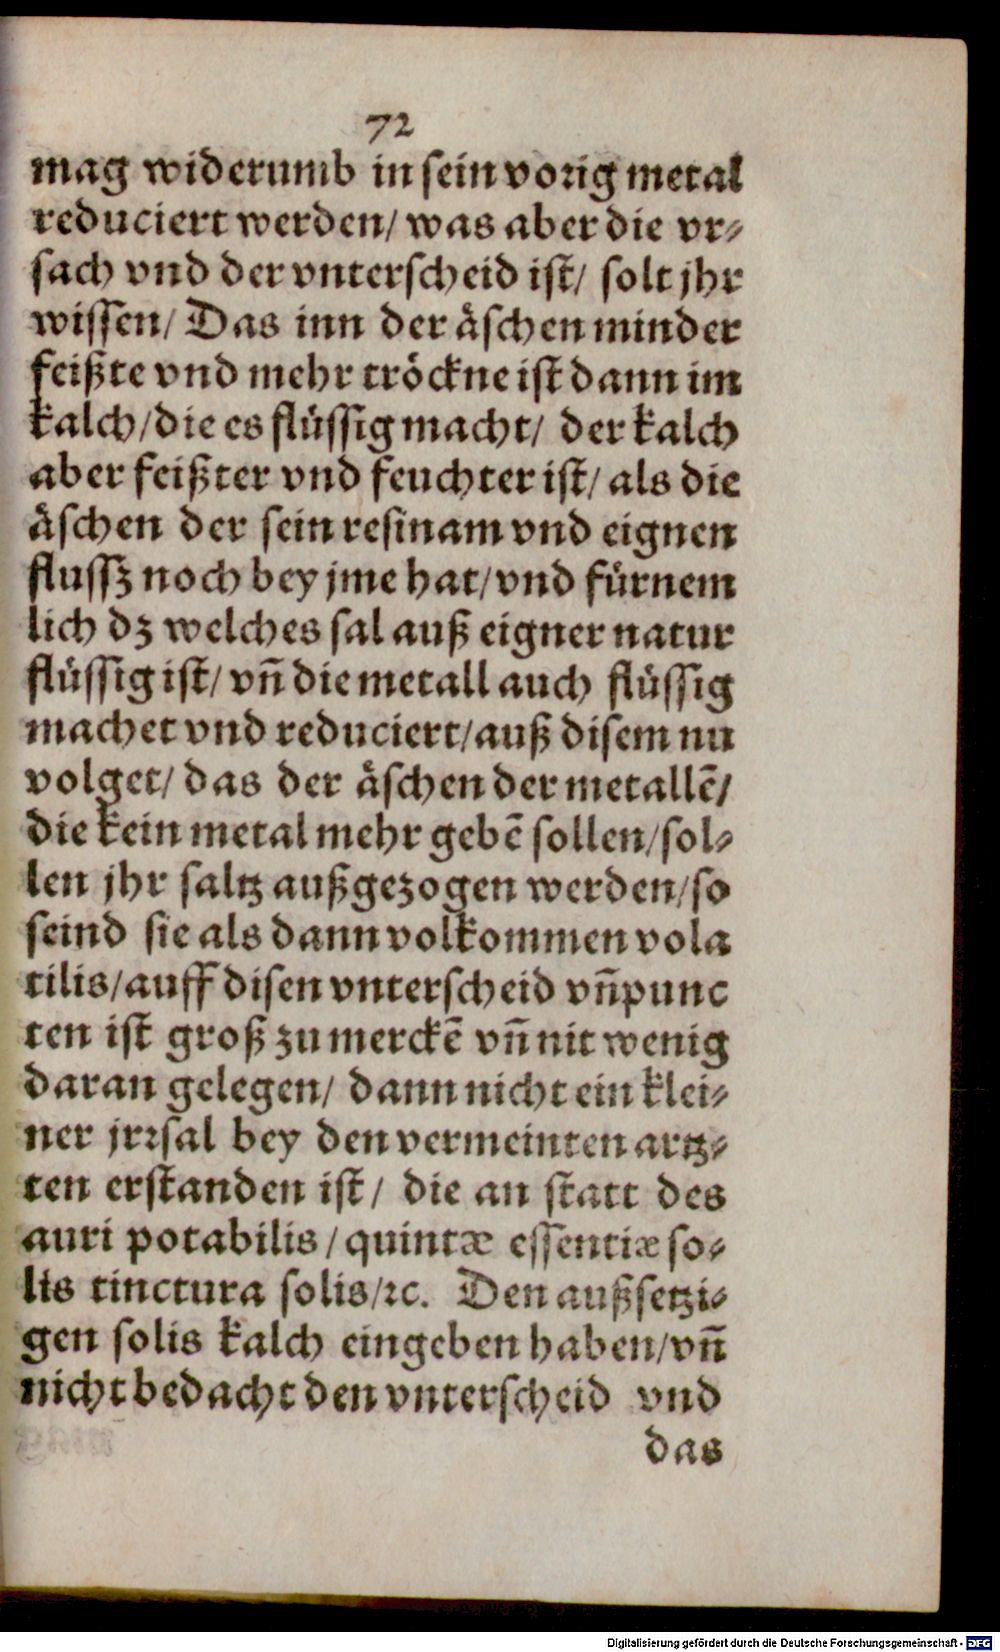 72
mag widerumb in sein vorig metal
reduciert werden/ was aber die vr-
sach vnd der vnterscheid ist/ solt jhr
wissen/ Das inn der äschen minder
feißte vnd mehr tröckne ist dann im
kalch/ die es flüssig macht/ der kalch
aber feißter vnd feuchter ist/ als die
äschen der sein resinam vnd eignen
flussz noch bey jme hat/ vnd fürnem
lich dz welches sal auß eigner natur
flüssig ist/ vñ die metall auch flüssig
machet vnd reduciert/ auß disem nu
volget/ das der äschen der metallē/
die kein metal mehr gebē sollen/ sol-
len jhr saltz außgezogen werden/ so
seind sie als dann volkommen vola
tilis/ auff disen vnterscheid vñ punc
ten ist groß zu merckē vñ nit wenig
daran gelegen/ dann nicht ein klei-
ner jrrsal bey den vermeinten artz-
ten erstanden ist/ die an statt des
auri potabilis/ quintæ essentiæ so-
lis tinctura solis/ ꝛc. Den außsetzi-
gen solis kalch eingeben haben/ vñ
nicht bedacht den vnterscheid vnd
das
Digitalisierung gefördert durch die Deutsche Forschungsgemeinschaft - DFG